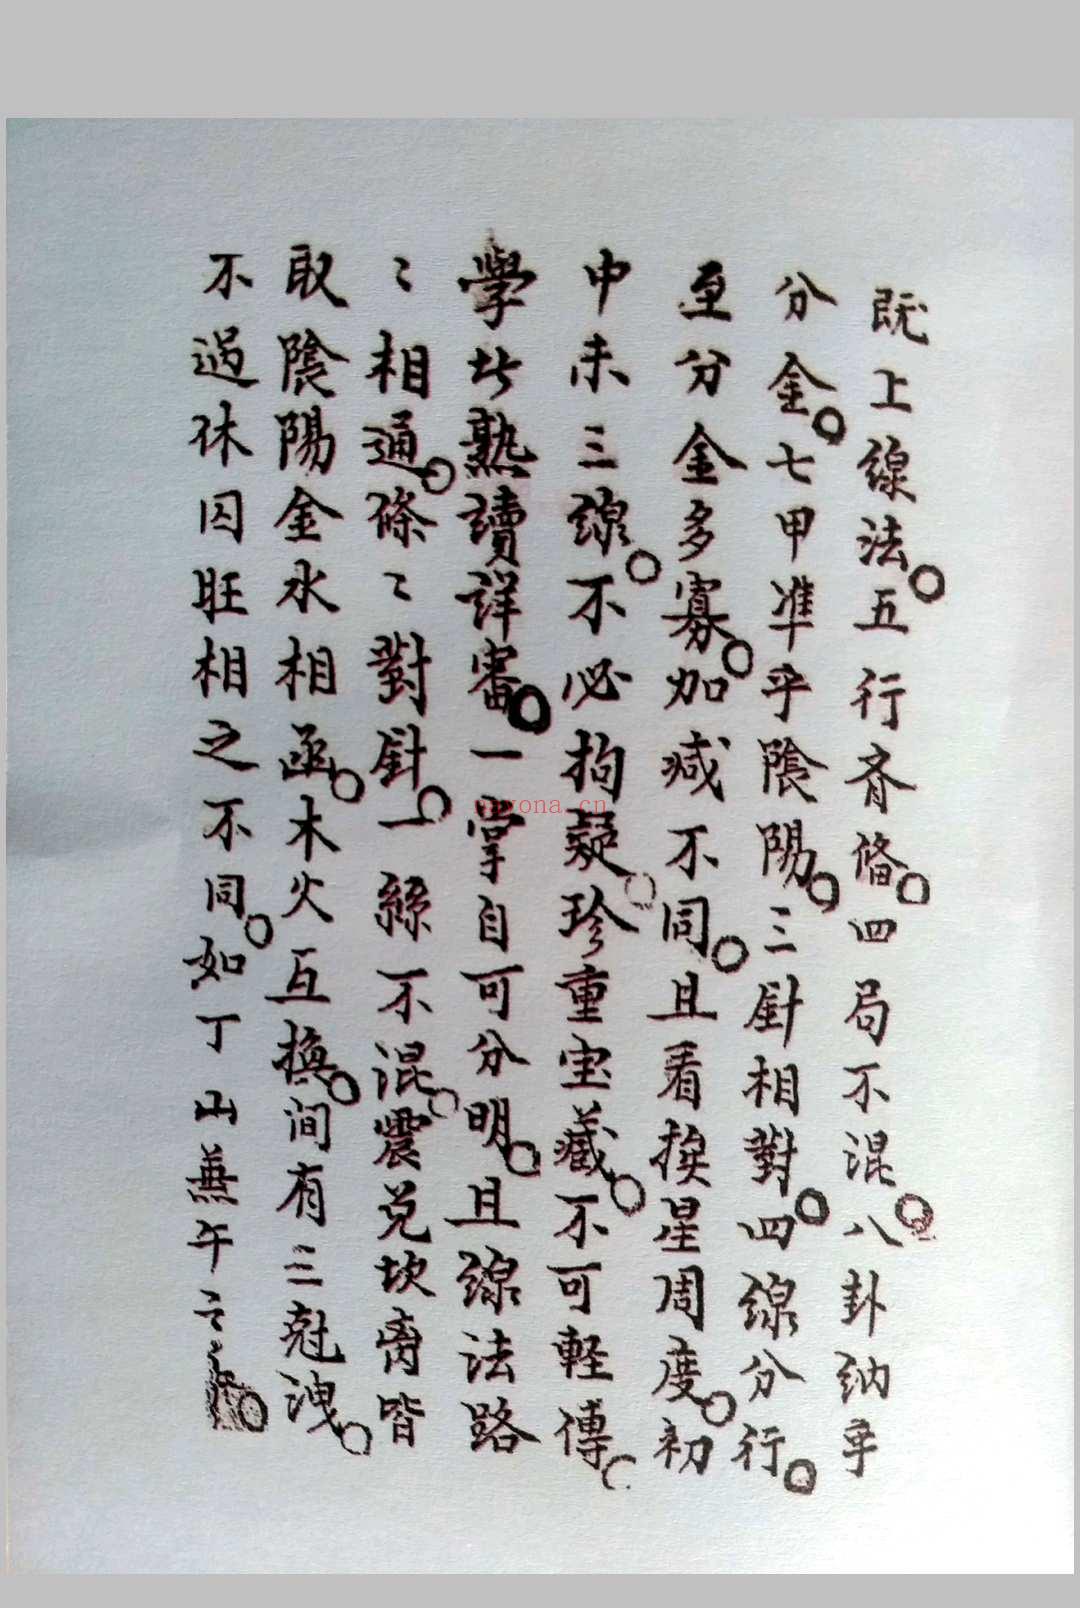 既上線法。五行齐俻。四局不混。八卦纳乎
分金。七甲準乎陰陽。三針相對。四線分行。
至分金多寡。加减不同。且看换星周度。初
中末三線。不必拘疑。珍重宝藏。不可軽傳。
學此熟讀詳審。一掌自可分明。且線法路
〻相通。條〻對針。一絲不混。震兑坎离皆
取陰陽金水相函。木火互换。间有三尅洩。
不過休囚旺相之不同。如丁山蕪午